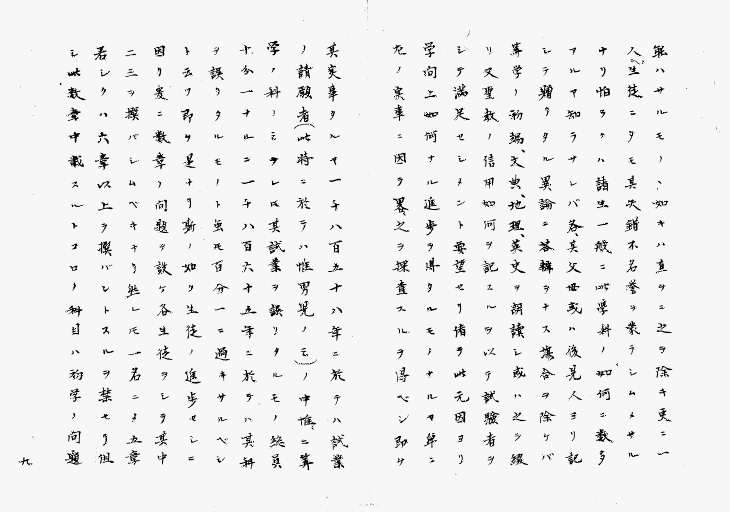 能ハサルモノヽ如キハ直チニ之ヲ除キ更ニ一
人ノ生徒ニタモ其失錯不名誉ヲ蒙ラシムヿサル
ナリ怕ラクハ諸生一般ニ此学科ノ如何ニ数多
アルヤ知ラサレバ各其父母或ハ後見人ヨリ記
シテ贈リタル異論ニ答辯ヲナス場合ヲ除ケバ
算学ノ初歩、文典、地理、英史ヲ朗読シ或ハ之ヲ綴
リ又聖教ノ信用如何ヲ記スルヲ以テ試験者ヲ
シテ満足セシメント要望セリ偖テ此元因ヨリ
学問上如何ナル進歩ヲ得タルモノナルヤ第二
九ノ実事ニ因テ畧之ヲ探査スルヲ得ベシ即チ
其実事タルヤ一千八百五十八年ニ於テハ試業
ノ請願者(此時ニ於テハ惟男児ノミ)ノ中惟ニ算
学ノ科ノミタレ𪜈其試業ヲ誤リタルモノ総員
十分一ナルニ一千八百六十五年ニ於テハ其科
ヲ誤リタルモノト虽モ百分一ニ過キサルベシ
ト云フ即チ是ナリ斯ノ如ク生徒ノ進歩セシニ
因リ爰ニ数章ノ問題ヲ設ケ各生徒ヲシテ其中
二三ヲ撰バシムベキナリ然レモ一名ニテ五章
若シクハ六章以上ヲ撰バントスルヲ禁セリ但
シ此数章中載スルトコロノ科目ハ初学ノ問題
九